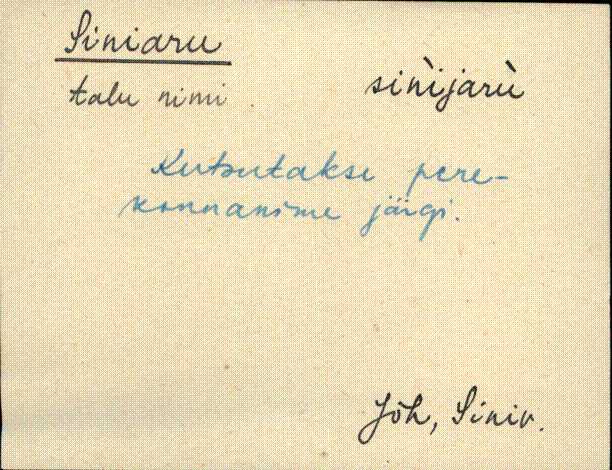 Siniaru
talu nimi
sìnìjarù
Kutsutakse pere-
konnanime järgi.
Jõh, Siniv.